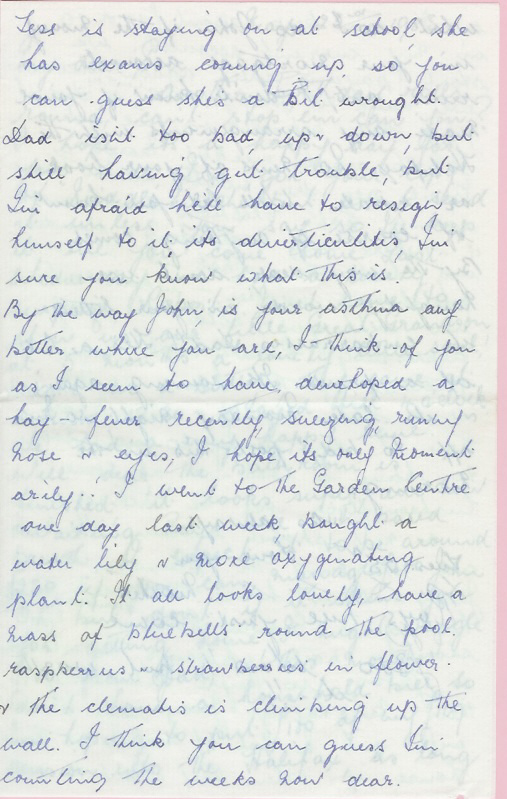 Tess is staying on at school, she
has exams coming up, so you
can guess she's a Bit wrought.
Dad isn't too bad, up & down, but
still having gut trouble, but
I'm afraid he'll have to resign
himself to it, its diverticulitis, I'm
sure you know what this is.
By the way John, is your asthma any
better where you are, I think of you
as I seem to have developed a
hay-fever recently, sneezing, runny
nose & eyes, I hope its only moment
arily.! I went to the Garden Centre
one day last week, bought a
water lily & more oxygenating
plant. It all looks lovely, have a
mass of bluebells round the pool.
raspberries & strawberries in flower.
& the clematis is climbing up the
wall. I think you can guess I'm
counting the weeks now dear.